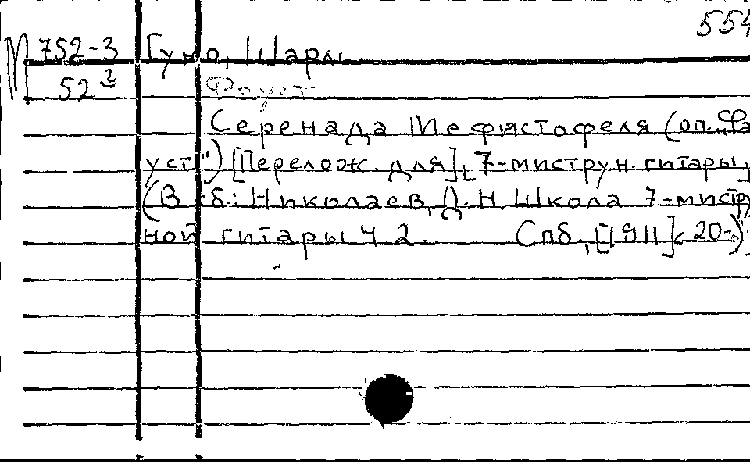 554
М 752-3 Гуно, Шарль
52² Фауст
Серенада Мефистофеля (оп. „Фа
уст") [Перелож. для] 7-миструн. гитары,
(В сб: Николаев, Д. Н. Школа 7-мистр
ной гитары ч 2. Спб, [1911] с 20-)